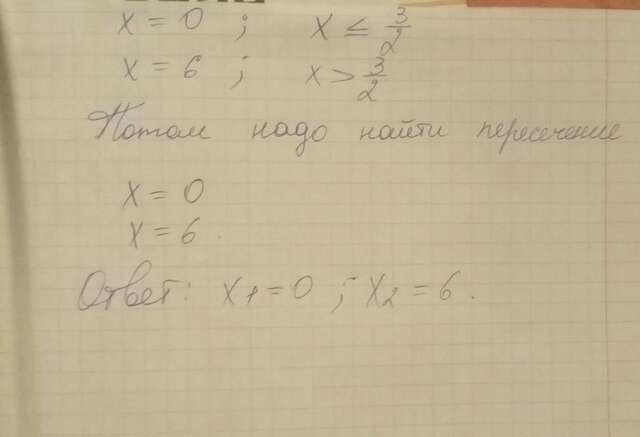 x = 0 ; x ≤ 3/2
x = 6 ; x > 3/2
Потом надо найти пересечение
x = 0
x = 6.
Ответ: x1 = 0 ; x2 = 6.